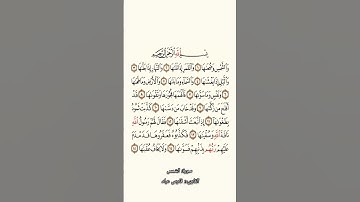 بِسْمِ ٱللَّهِ ٱلرَّحْمَٰنِ ٱلرَّحِيمِ
وَٱلشَّمْسِ وَضُحَىٰهَا ١ وَٱلْقَمَرِ إِذَا تَلَىٰهَا ٢ وَٱلنَّهَارِ إِذَا جَلَّىٰهَا ٣
وَٱلَّيْلِ إِذَا يَغْشَىٰهَا ٤ وَٱلسَّمَآءِ وَمَا بَنَىٰهَا ٥ وَٱلْأَرْضِ وَمَا طَحَىٰهَا
٦ وَنَفْسٍ وَمَا سَوَّىٰهَا ٧ فَأَلْهَمَهَا فُجُورَهَا وَتَقْوَىٰهَا ٨ قَدْ
أَفْلَحَ مَن زَكَّىٰهَا ٩ وَقَدْ خَابَ مَن دَسَّىٰهَا ١٠ كَذَّبَتْ ثَمُودُ
بِطَغْوَىٰهَآ ١١ إِذِ ٱنۢبَعَثَ أَشْقَىٰهَا ١٢ فَقَالَ لَهُمْ رَسُولُ ٱللَّهِ
نَاقَةَ ٱللَّهِ وَسُقْيَٰهَا ١٣ فَكَذَّبُوهُ فَعَقَرُوهَا فَدَمْدَمَ
عَلَيْهِمْ رَبُّهُم بِذَنۢبِهِمْ فَسَوَّىٰهَا ١٤ وَلَا يَخَافُ عُقْبَٰهَا ١٥
سورة الشمس